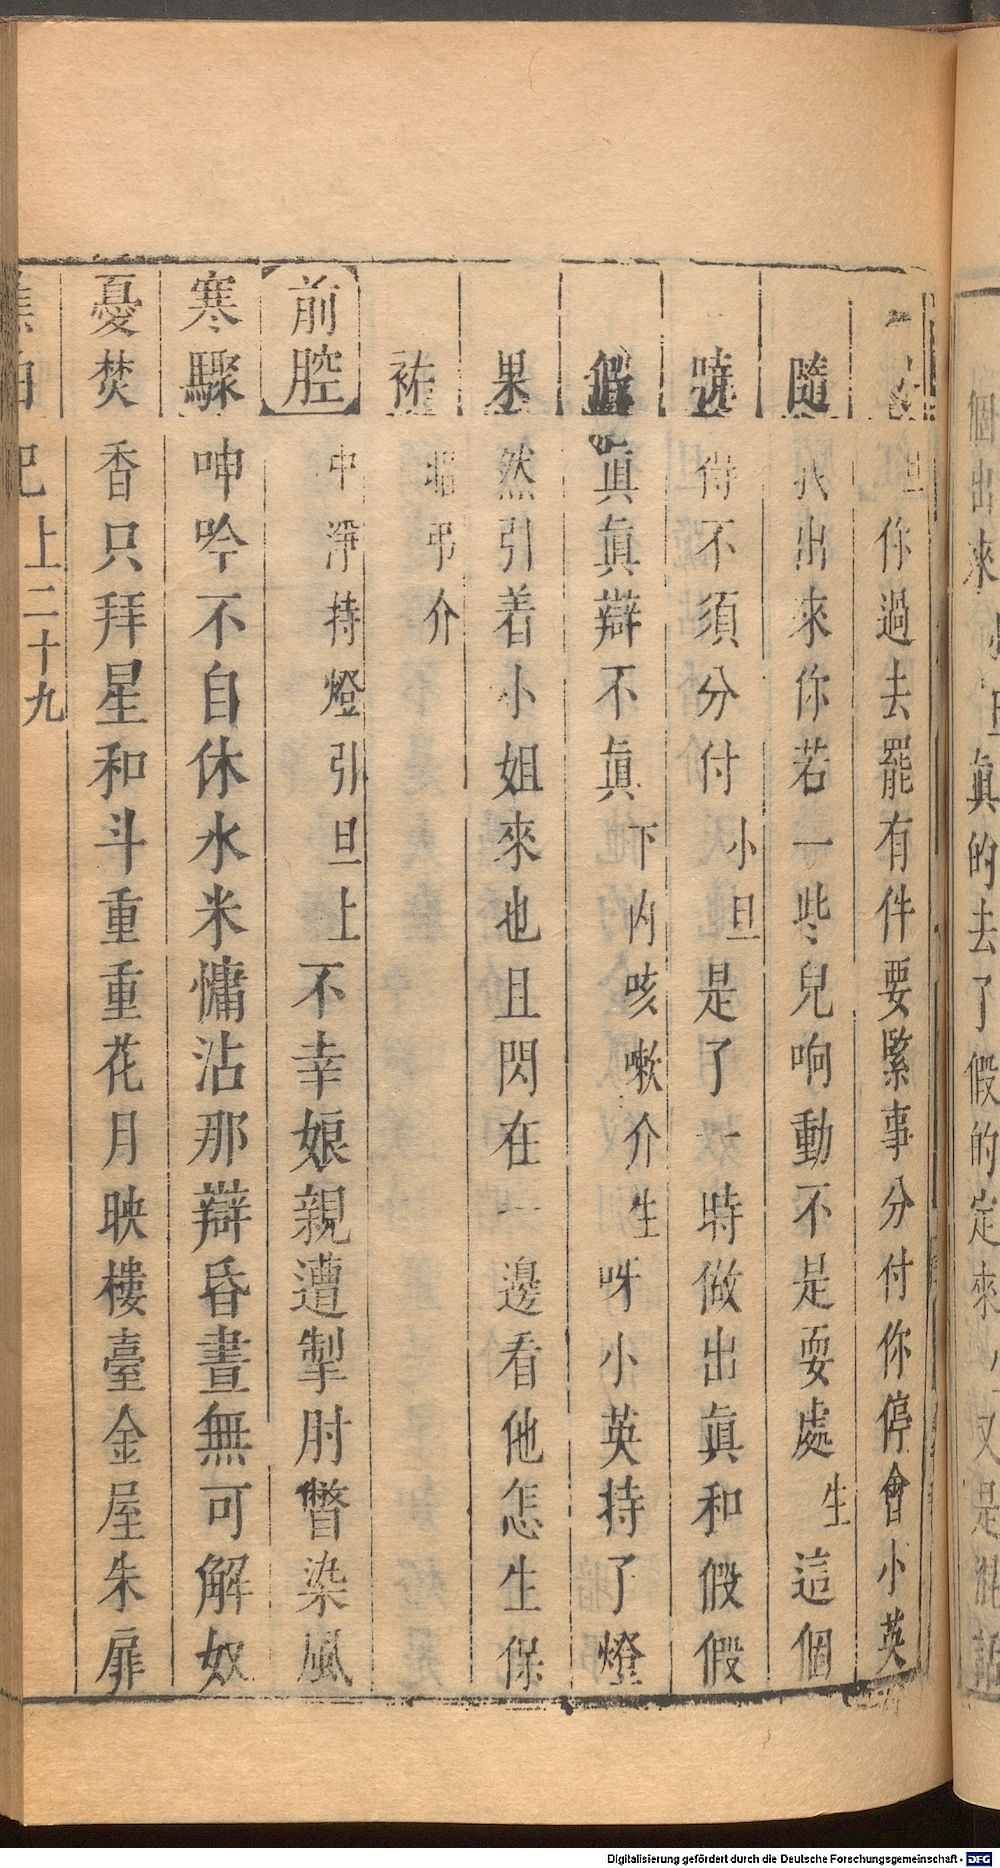 個出來 真的去了假的定來 又是
旦你過去罷有件要緊事分付你停會小英
隨我出來你若一些兒响動不是耍處生這個
曉得不須分付小旦是了一時做出真和假假
假真真辯不真下內咳嗽介生呀小英持了燈
果然引着小姐來也且閃在一邊看他怎生保
祐 弔介
前腔中淨持燈引旦上不幸娘親遭掣肘瞥染風
寒驟呻吟不自休水米慵沾那辯昏晝無可解奴
憂焚香只拜星和斗重重花月映樓臺金屋朱扉
上二十九
Digitalisierung gefördert durch die Deutsche Forschungsgemeinschaft - DFG